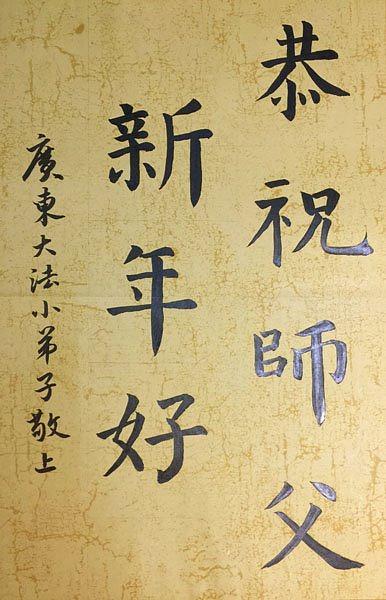 恭祝師父
新年好
廣東大法小弟子敬上